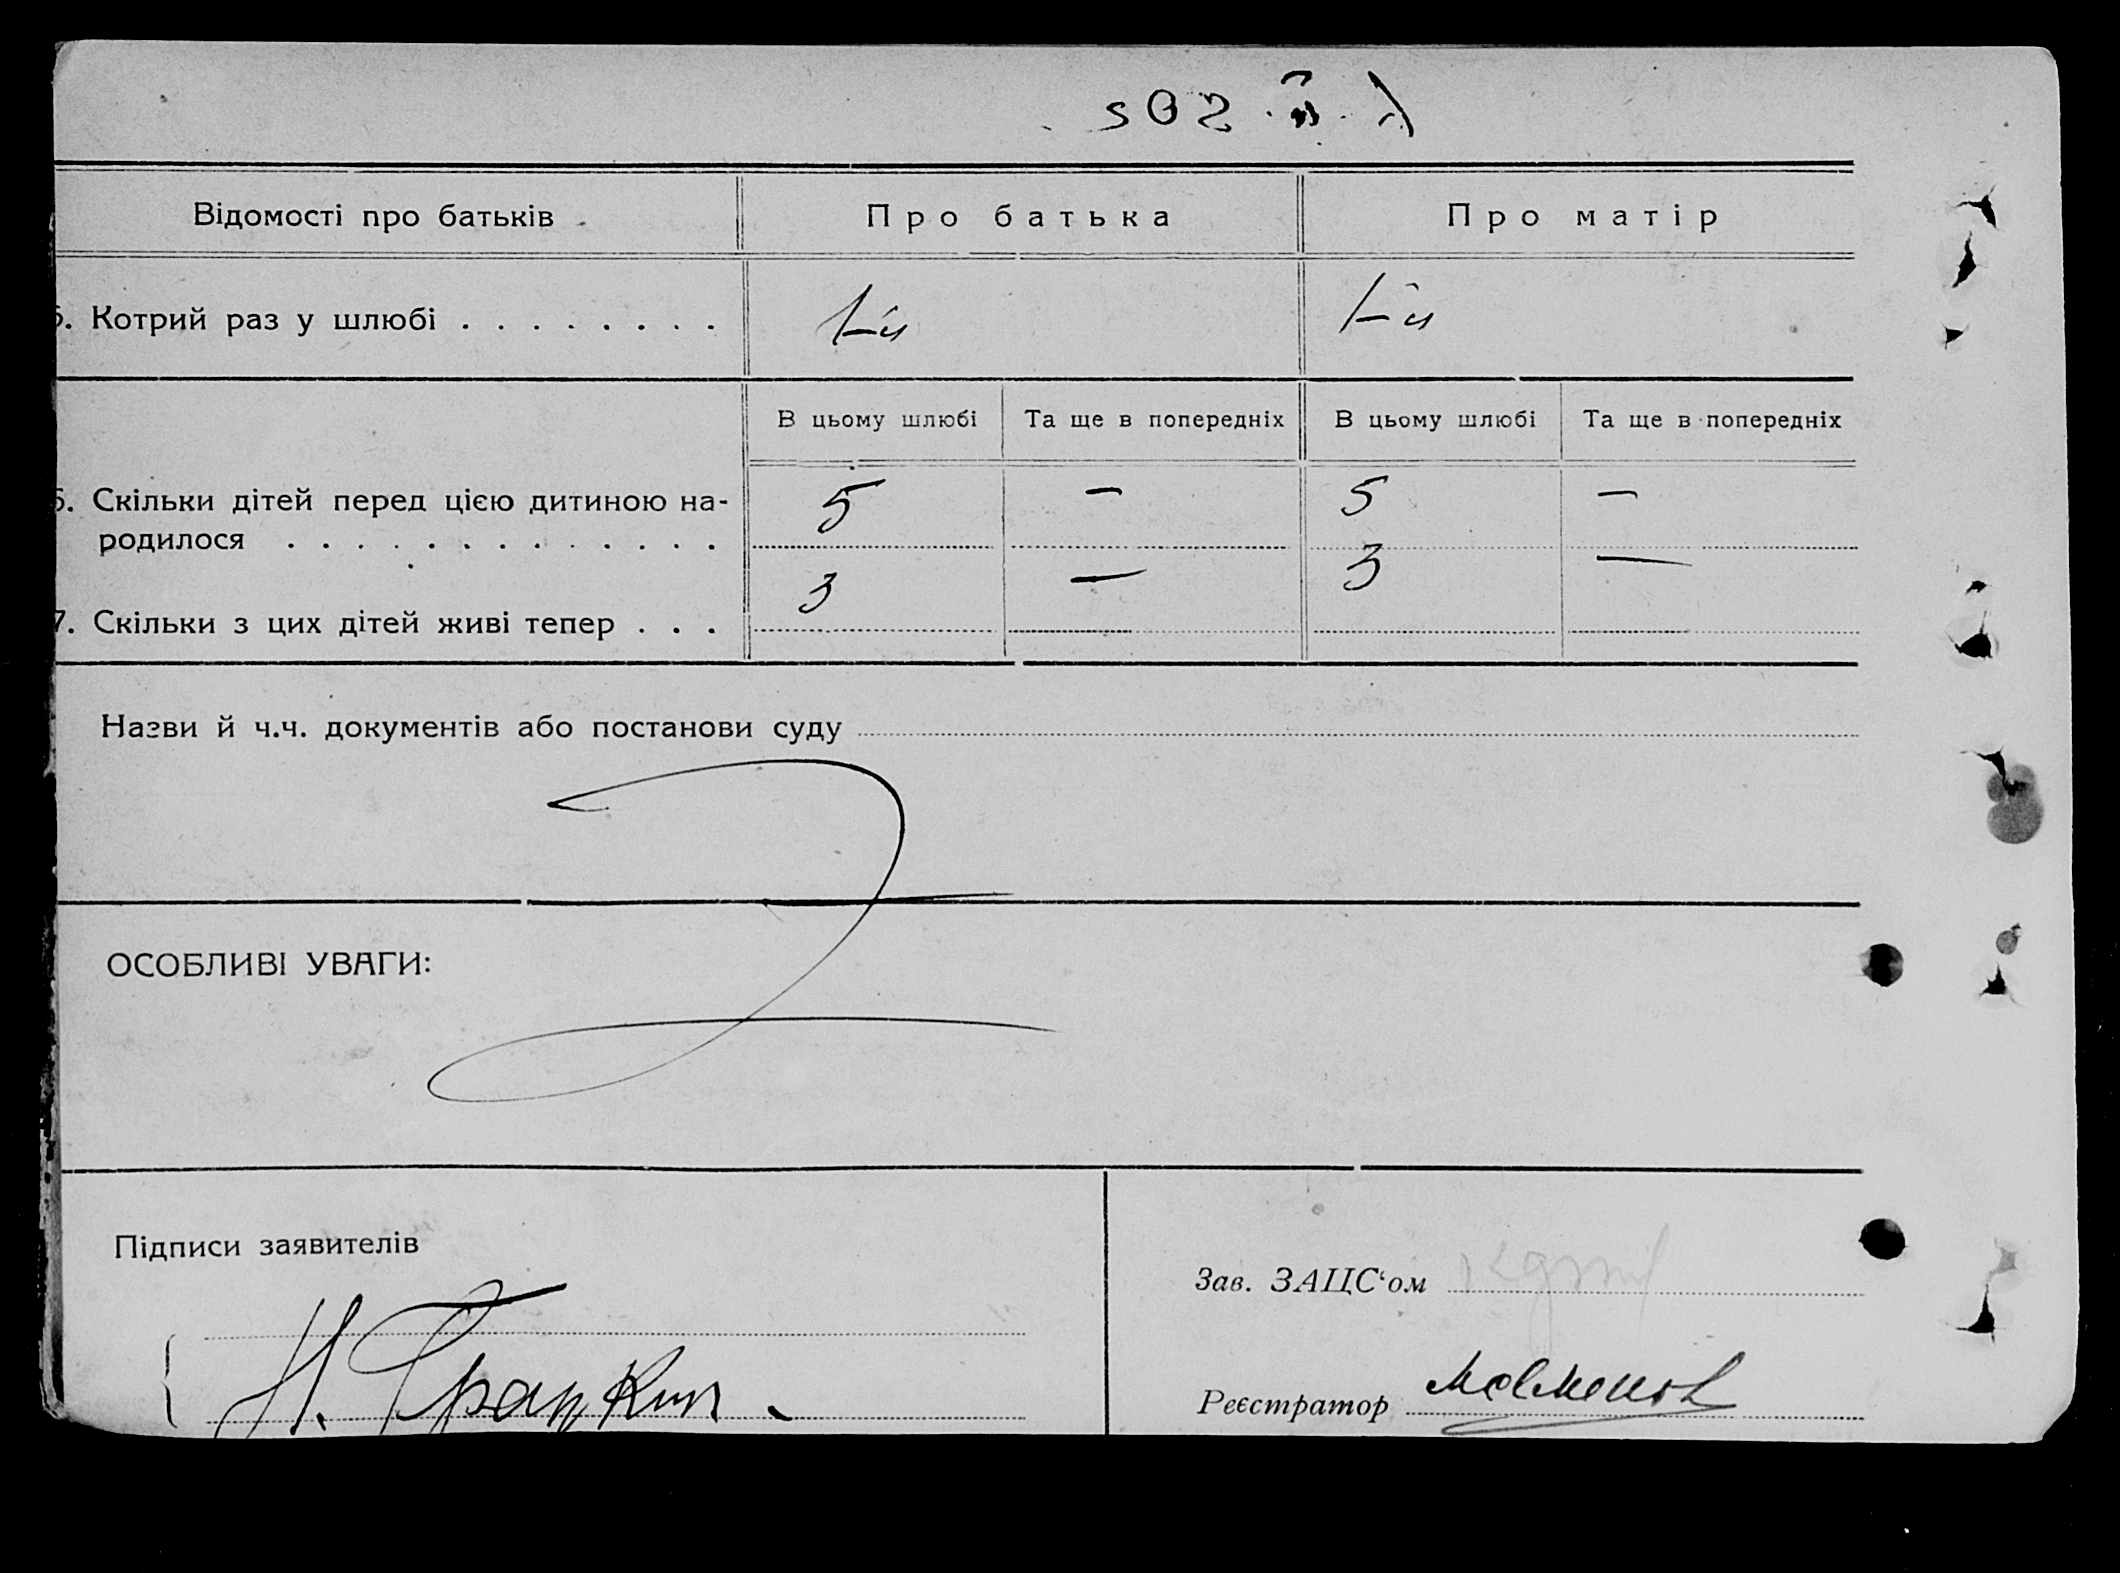 Відомості про батьків
Про батька
Про матір
Котрий раз у шлюбі . . . . . . . .
1-й
1-й
В цьому шлюбі
Та ще в попередніх
В цьому шлюбі
Та ще в попередніх
Скільки дітей перед цією дитиною на-
родилося . . . . . . . . . . . . .
5
—
5
—
7. Скільки з цих дітей живі тепер . . .
3
—
3
—
Назви й ч.ч. документів або постанови суду
ОСОБЛИВІ УВАГИ:
Підписи заявителів
Зав. ЗАЦС‘ом
Реєстратор